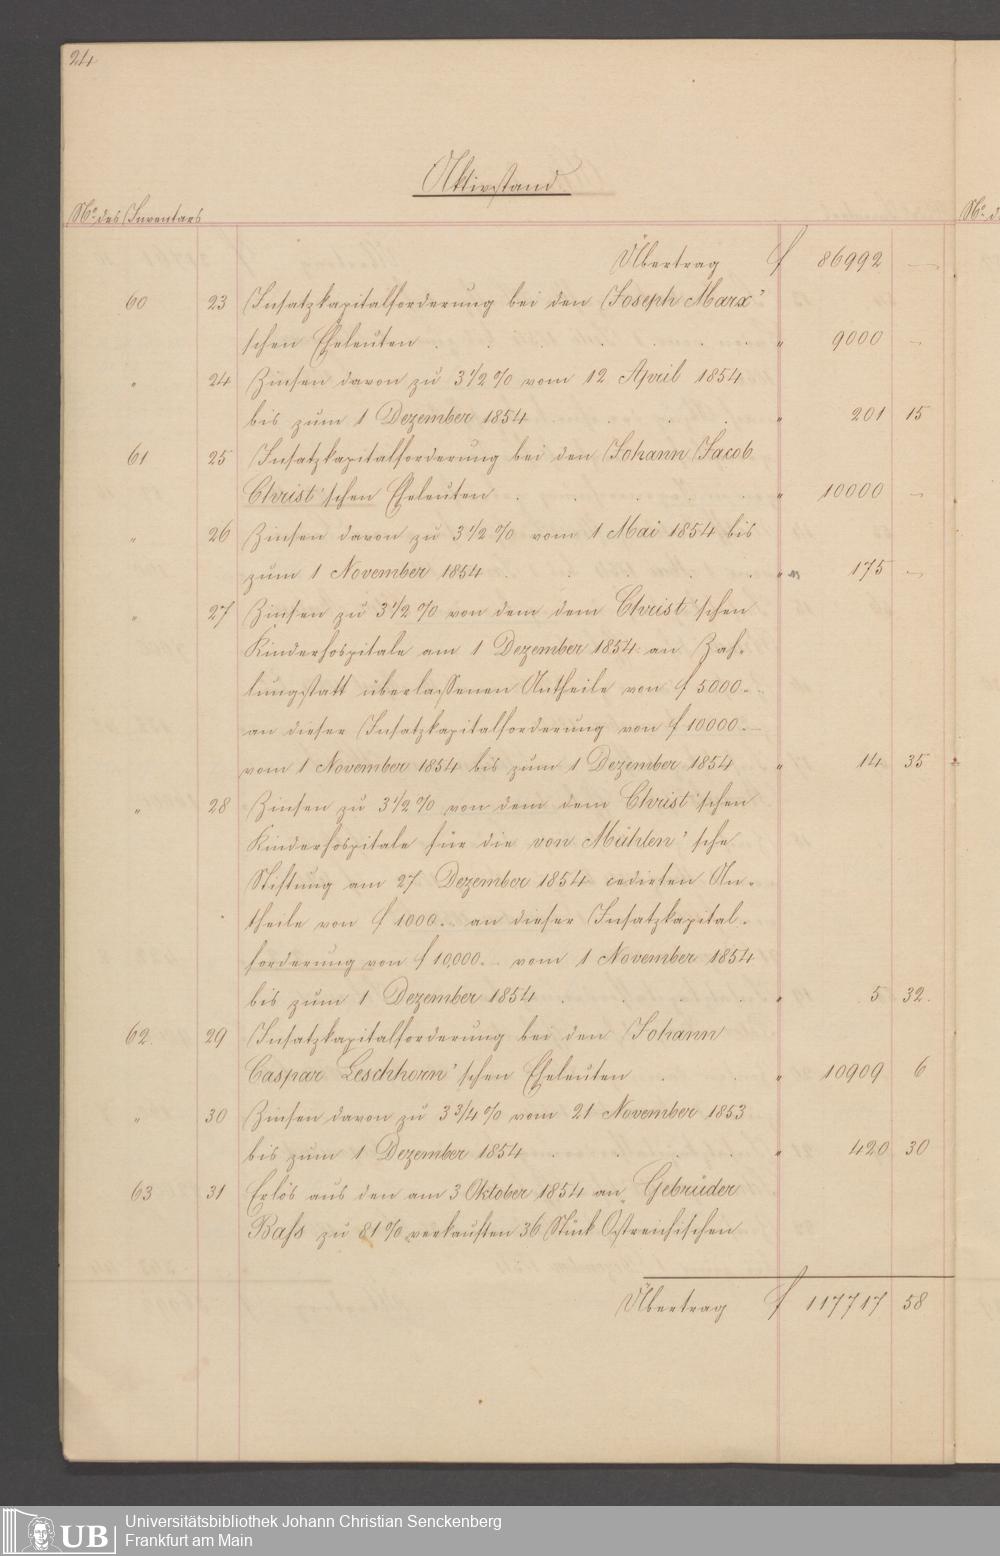 24
Aktivstand
No. des Inventars
Übertrag f 86992 —
60 23 Insatzkapitalforderung bei den Joseph Marx'
schen Eheleuten . . . . . . " 9000 —
" 24 Zinsen davon zu 3 1/2 % vom 12 April 1854
bis zum 1 Dezember 1854 . . . . " 201 15
61 25 Insatzkapitalforderung bei den Johann Jacob
Christ'schen Eheleuten . . . . . " 10000 —
" 26 Zinsen davon zu 3 1/2 % vom 1 Mai 1854 bis
zum 1 November 1854 . . . . . " 175 —
" 27 Zinsen zu 3 1/2 % von dem dem Christ'schen
Kinderhospitale am 1 Dezember 1854 an Zah-
lungstatt überlassenen Antheile von f 5000.-
an dieser Insatzkapitalforderung von f 10000.-
vom 1 November 1854 bis zum 1 Dezember 1854 " 14 35
" 28 Zinsen zu 3 1/2 % von dem dem Christ'schen
Kinderhospitale für die von Mühlen'sche
Stiftung am 27 Dezember 1854 cedirten An-
theile von f 1000.- an dieser Insatzkapital-
forderung von f 10,000.- vom 1 November 1854
bis zum 1 Dezember 1854 . . . . " 5 32.
62. 29 Insatzkapitalforderung bei den Johann
Caspar Leschhorn'schen Eheleuten . . " 10909 6
" 30 Zinsen davon zu 3 3/4 % vom 21 November 1853
bis zum 1 Dezember 1854 . . . . " 420 30
63 31 Erlös aus den am 3 Oktober 1854 an Gebrüder
Bass zu 81 % verkauften 36 Stück Östreichischen
Übertrag f 117717 58
No. d
UB
Universitätsbibliothek Johann Christian Senckenberg
Frankfurt am Main